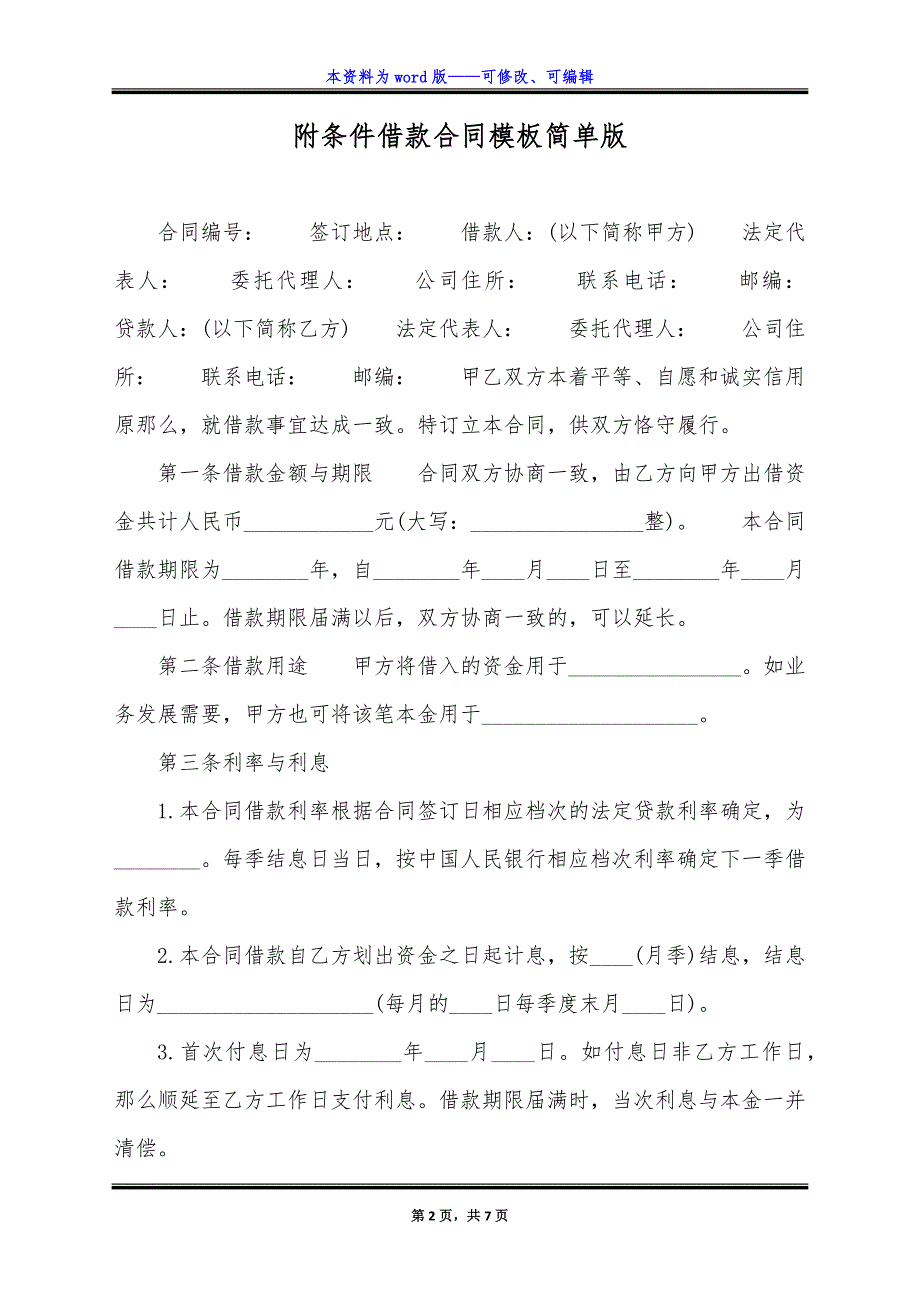 本资料为 word 版——可修改、可编辑
附条件借款合同模板简单版
合同编号：　　签订地点：　　借款人：(以下简称甲方)　　法定代
表人：　　委托代理人：　　公司住所：　　联系电话：　　邮编：
贷款人：(以下简称乙方)　　法定代表人：　　委托代理人：　　公司住
所：　　联系电话：　　邮编：　　甲乙双方本着平等、自愿和诚实信用
原那么，就借款事宜达成一致。特订立本合同，供双方恪守履行。
第一条借款金额与期限　　合同双方协商一致，由乙方向甲方出借资
金共计人民币____________元(大写：________________整)。　　本合同
借款期限为________年，自________年____月____日至________年____月
____日止。借款期限届满以后，双方协商一致的，可以延长。
第二条借款用途　　甲方将借入的资金用于________________。如业
务发展需要，甲方也可将该笔本金用于____________________。
第三条利率与利息
1.本合同借款利率根据合同签订日相应档次的法定贷款利率确定，为
________。每季结息日当日，按中国人民银行相应档次利率确定下一季借
款利率。
2.本合同借款自乙方划出资金之日起计息，按____(月季)结息，结息
日为____________________(每月的____日每季度末月____日)。
3.首次付息日为________年____月____日。如付息日非乙方工作日，
那么顺延至乙方工作日支付利息。借款期限届满时，当次利息与本金一并
清偿。
第 2 页，共 7 页